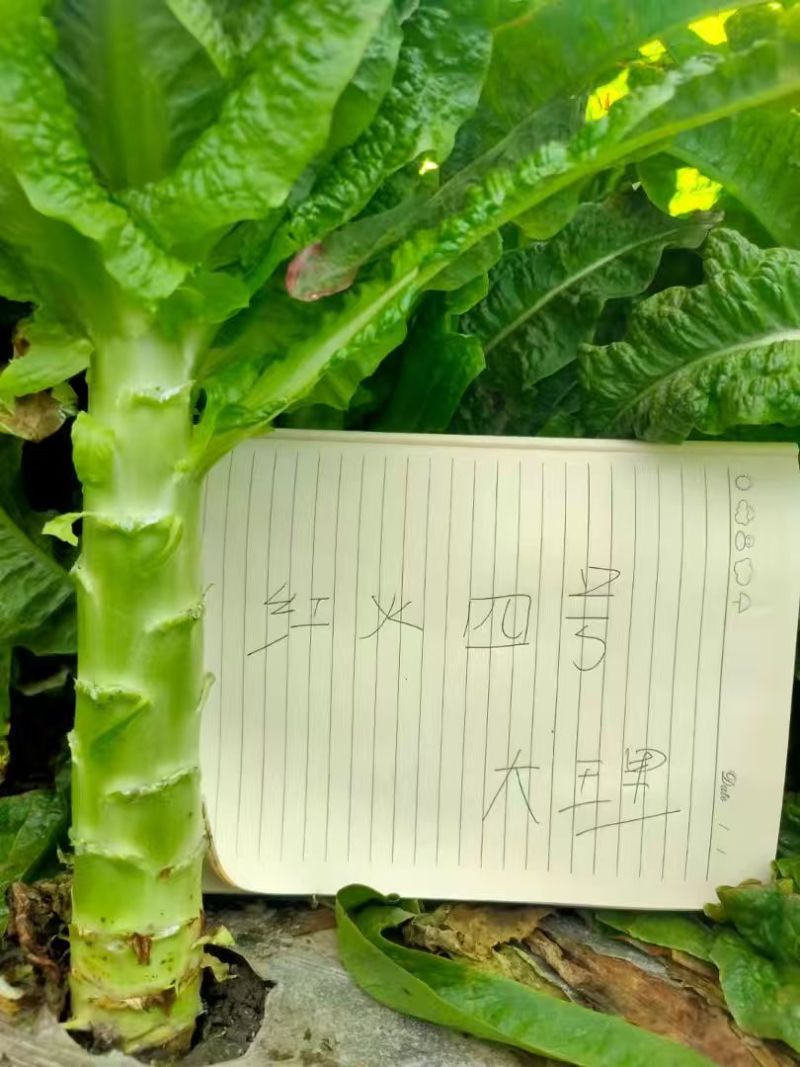 红火四号
大理
Date